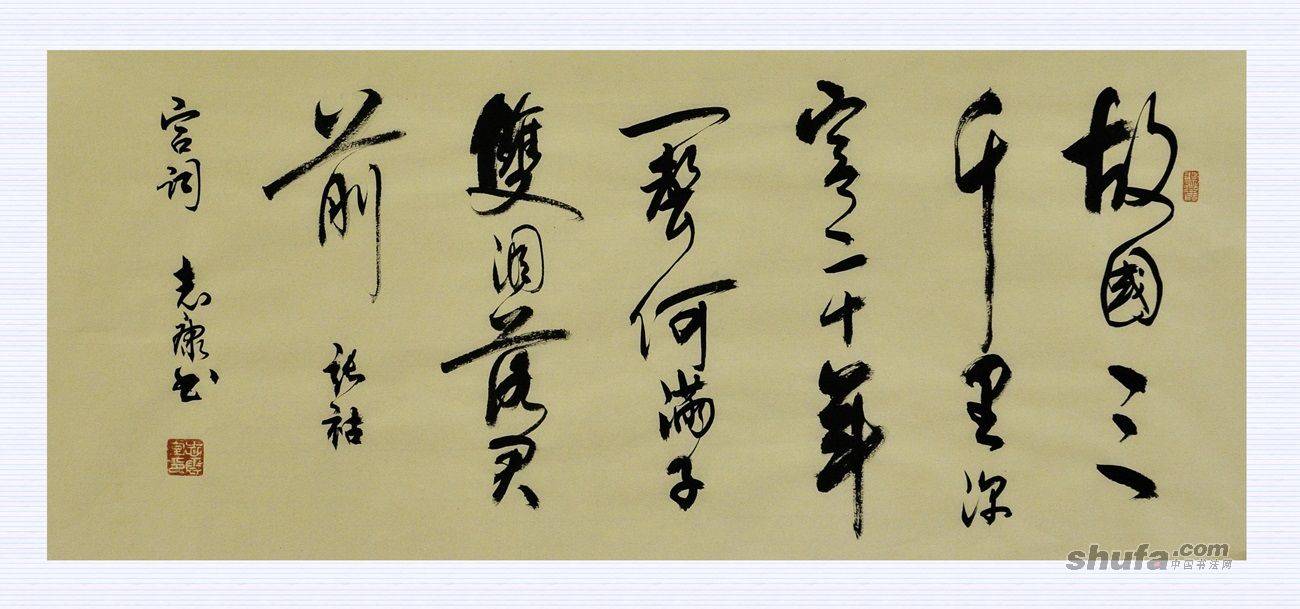 故國三
千里深
宮二十年
一聲何滿子
雙淚落君
前 張祜
宮詞 志康書
shufa.com
中国书法网